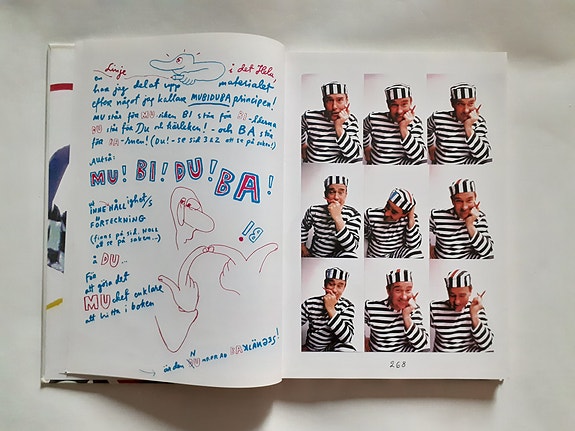 Linje i det Hela,
har jag delat upp materialet
efter något jag kallar MUBIDUBAprincipen!
MU står för MU-siken BI står för BI-lderna
DU står för Du och kärleken! - och BA står
för BA-rnen! (Du! - se sid 362 att se på saken!)
Alltså:
MU! BI! DU! BA!
INNEHÅLLighets/
FÖRTECKNING
(finns på sid. NOLL
att se på saken...)
BI!
å DU...
För
att göra det
MUcket enklare
att hitta i boken
är den NUMMRAD BAKLÄNGES!
268